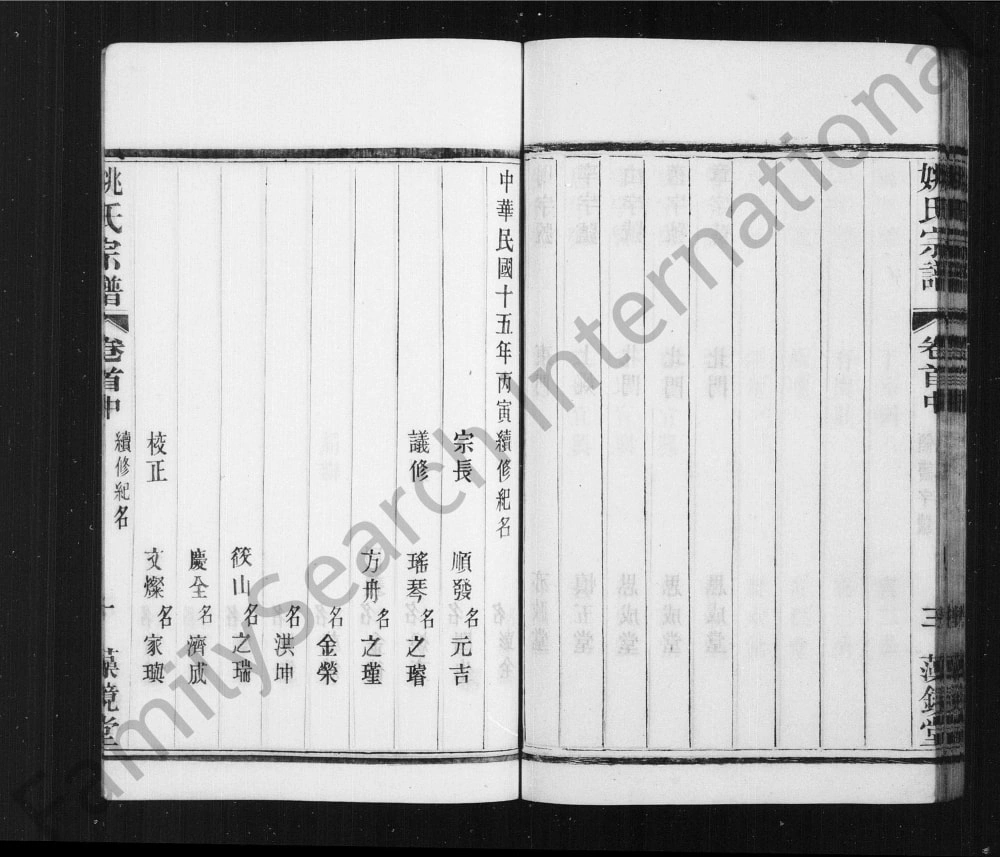 姚氏宗譜
卷首中
三
中華民國十五年丙寅續修紀名
宗長 順發名元吉
議修 瑤琴名之璿
方舟名之瑾
名金榮
名洪坤
筱山名之瑞
慶全名濟成
校正 文燦名家璵
姚氏宗譜
卷首中
續修紀名
一
FamilySearch International